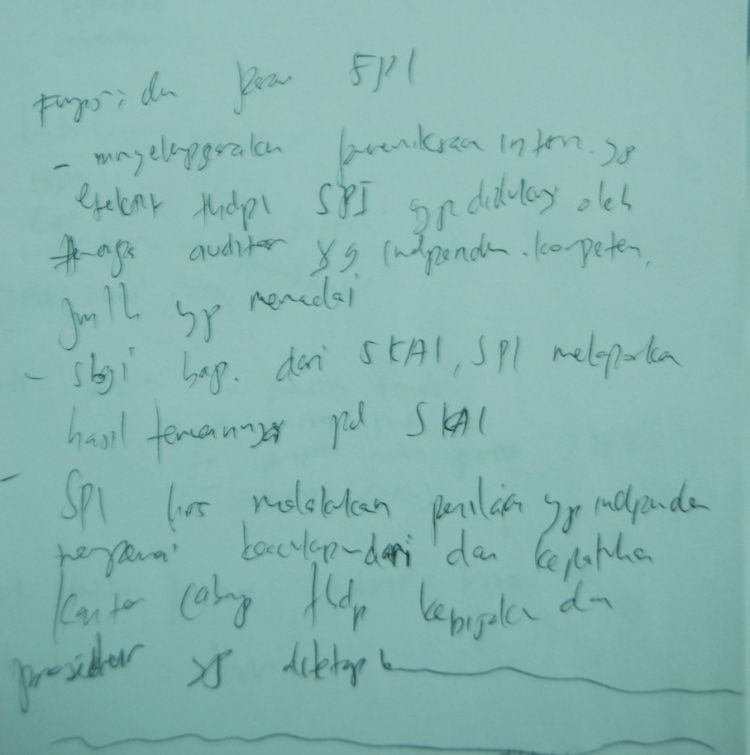 Fungsi dan peran SPI
- menyelenggarakan pemeriksaan intern yg
efektif thdp SPI yg didukung oleh
tenaga auditor yg independen. kompeten,
jmlh yg memadai
- sbgi bag. dari SKAI, SPI melaporkan
hasil temuannya pd SKAI
- SPI hrs melakukan penilaian yg independen
mengenai kecukupan dari dan kepatuhan
kantor cabang thdp kebijakan dan
prosedur yg ditetap